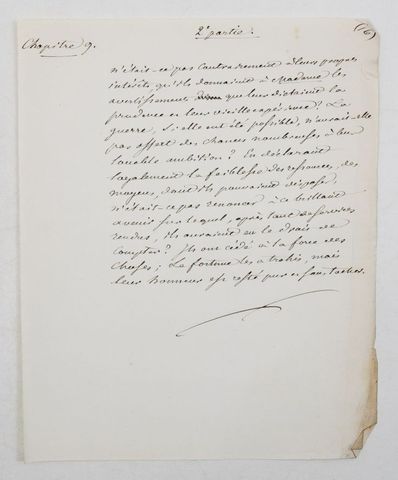 2e partie.
(6)
Chapitre 9.
n'était-ce pas contrairement à leurs propres
intérêts qu'ils donnaient à Madame les
avertissements que leur dictaient la
prudence et leur vieille expérience? La
guerre, si elle eut été possible, n'aurait-elle
pas offert des chances nombreuses à leur
louable ambition? En déclarant
loyalement la faiblesse des ressources, des
moyens, dont ils pouvaient disposer,
n'était-ce pas renoncer à ce brillant
avenir sur lequel, après tant de services
rendus, ils auraient eu le droit de
compter? Ils ont cédé à la force des
choses; La fortune les a trahis, mais
leur honneur est resté pur et sans taches.